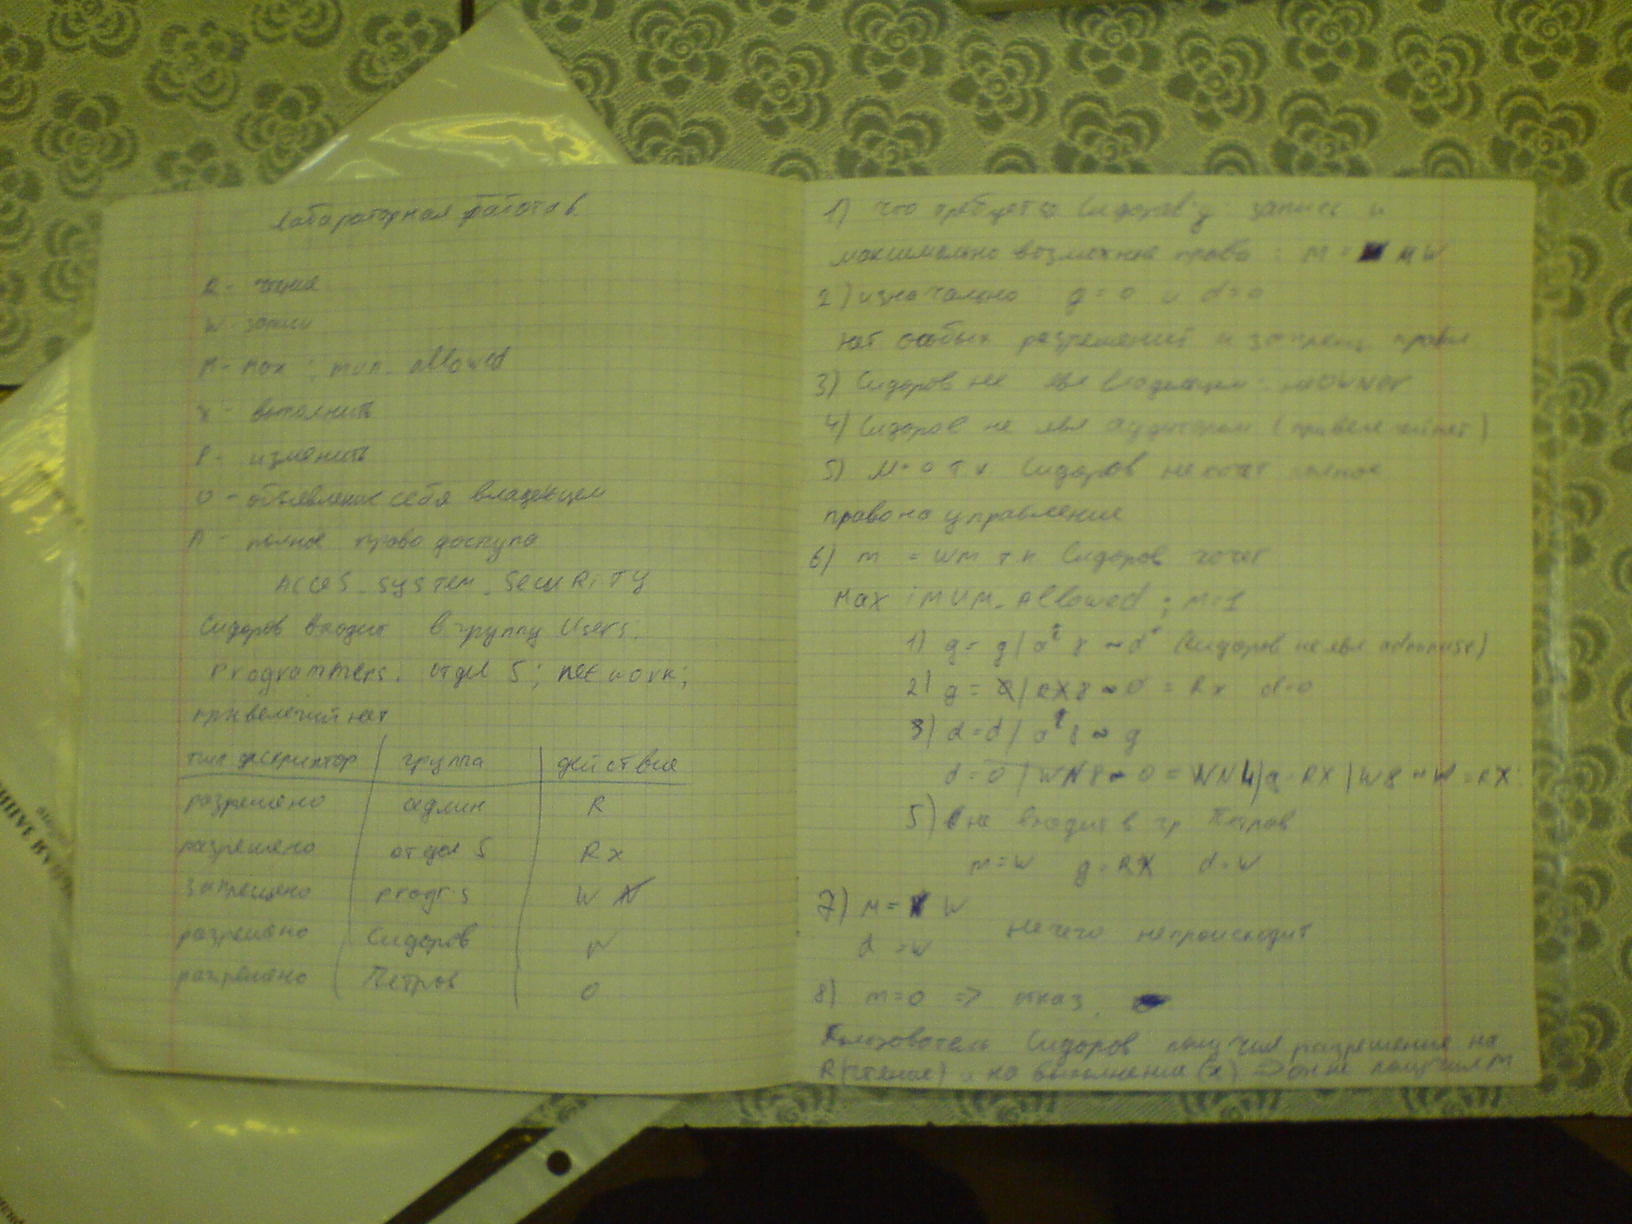 Лабараторная работа 6
R - чтение
W - запись
M - max ; mum. allowed
X - выполнить
P - изменить
O - объявление себя владельцем
A - полное право доступа
ACCES _ SYSTEM _ SECURITY
Сидоров входит в группу Users;
Programmers; отдел 5; network;
привелегий нет
тип дескриптор | группа | действия
разрешено админ R
разрешено отдел 5 Rx
запрещено progrs W
разрешено Сидоров W
разрешено Петров O
1) что требуется Сидорову: запись и
максимально возможное право : M = MW
2) изначально g = 0 и d = 0
нет особых разрешений и запрещ. правил
3) Сидоров не явл владельцем: не OWNER
4) Сидоров не явл аудитором (привелегий нет)
5) M = 0 т к Сидоров не хочет полное
право на управление
6) m = WM т к Сидоров хочет
MAXiMUM_Allowed ; M=1
1) g = g | a & ~ d (Сидоров не явл админист)
2) g = 0 | RX & ~ 0 = Rx d=0
3) d = d | a & ~ g
d = 0 | WN & ~ 0 = WN 4) g = RX | W & ~ W = RX
5) не входит в гр Петров
m = W g = RX d = W
7) M = W
d = W ничего не происходит
8) m = 0 => отказ
Пользователь Сидоров получил разрешение на
R (чтение) и на выполнение (x) => он не получил M